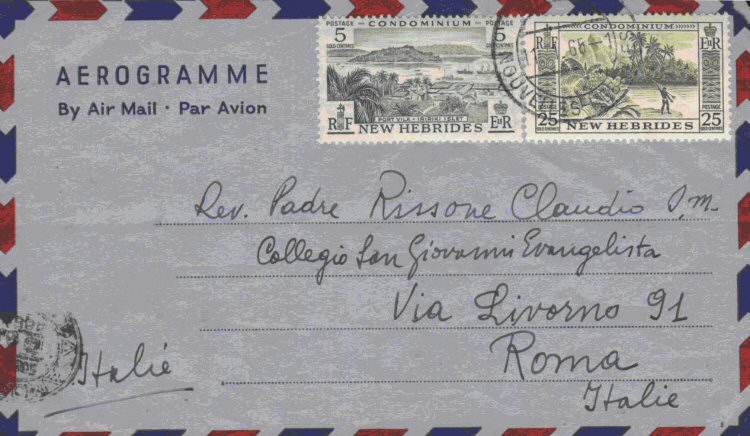 POSTAGE CONDOMINIUM POSTAGE
5 5
GOLD·CENTIMES GOLD·CENTIMES
PORT VILA - IRIRIKI ISLET
RF NEW HEBRIDES EIIR
CONDOMINIUM
RF EIIR
POSTAGE
25 NEW HEBRIDES 25
GOLD·CENTIMES GOLD·CENTIMES
AEROGRAMME
By Air Mail · Par Avion
Rev. Padre Rissone Claudio
Collegio San Giovanni Evangelista
Via Livorno 91
Roma
Italie
Italie